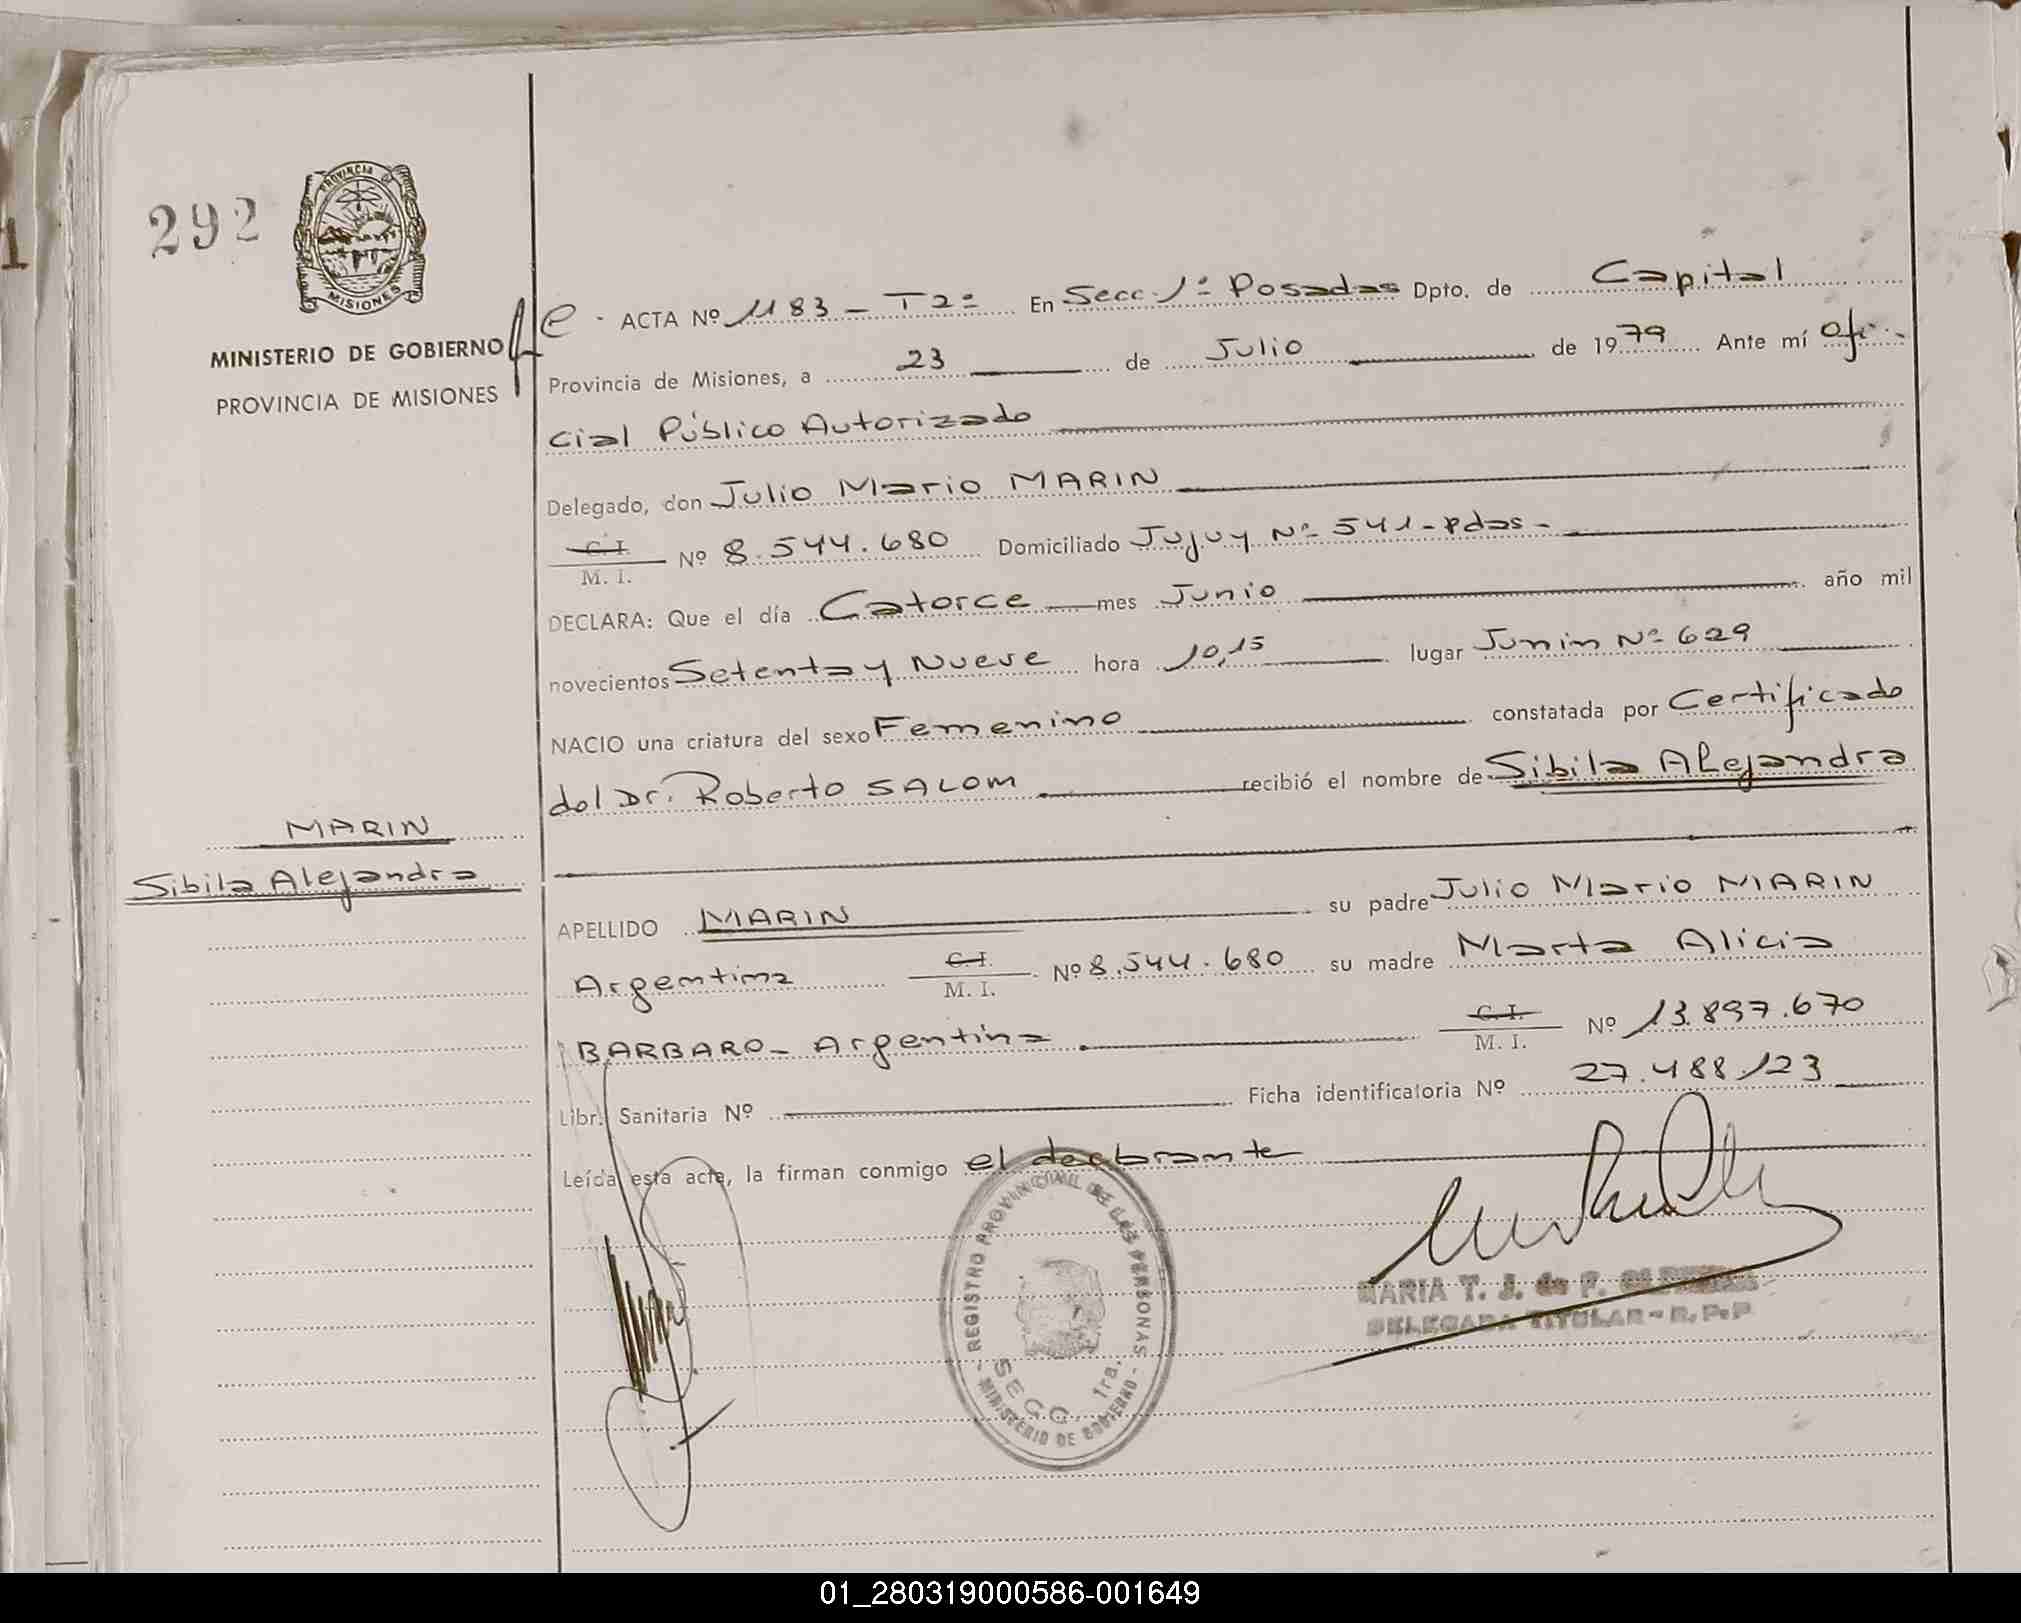 292
PROVINCIA DE
MISIONES
MINISTERIO DE GOBIERNO
PROVINCIA DE MISIONES
ACTA Nº 1183 - T2º En Secc. 1º Posadas Dpto. de Capital
Provincia de Misiones, a 23 de Julio de 1979 Ante mí Ofi-
cial Público Autorizado
Delegado, don Julio Mario MARIN
C.I.
M. I. Nº 8.544.680 Domiciliado Jujuy Nº 541 - Pdas -
DECLARA: Que el día Catorce mes Junio año mil
novecientos Setenta y Nueve hora 10,15 lugar Junin Nº 629
NACIO una criatura del sexo Femenino constatada por Certificado
del Dr. Roberto SALOM recibió el nombre de Sibila Alejandra
MARIN
Sibila Alejandra
APELLIDO MARIN su padre Julio Mario MARIN
Argentina C.I.
M. I. Nº 8.544.680 su madre Marta Alicia
BARBARO - Argentina C.I.
M. I. Nº 13.897.670
Libr. Sanitaria Nº Ficha identificatoria Nº 27.488.123
Leída esta acta, la firman conmigo el declarante
REGISTRO PROVINCIAL DE LAS PERSONAS
SECC. 1ra.
MINISTERIO DE GOBIERNO
MARIA T. J. de F.
DELEGADA TITULAR - R. P. P
01_280319000586-001649